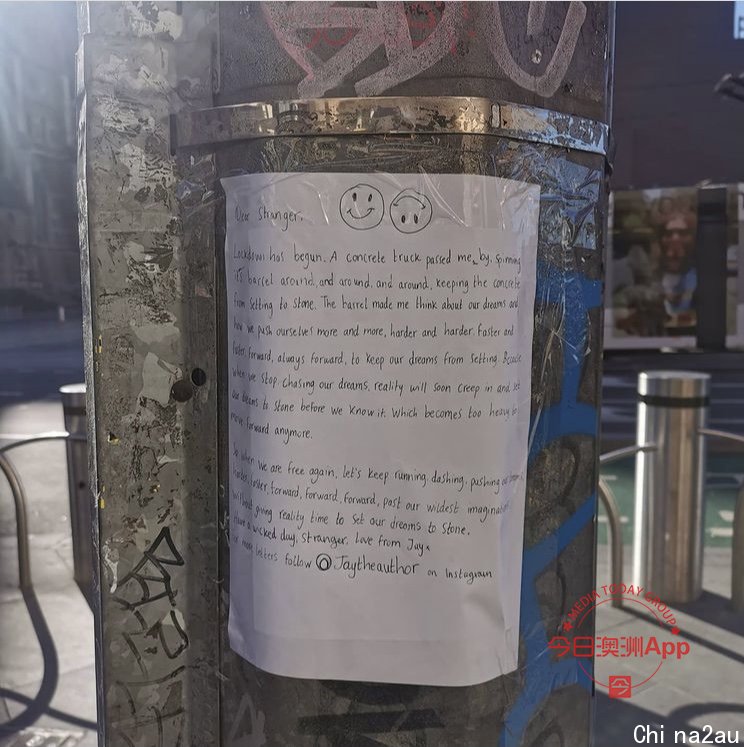 Dear Stranger,
Lockdown has begun. A concrete truck passed me by. Spinning
it's barrel around, and around, and around, keeping the concrete
from setting to stone. The barrel made me think about our dreams and
how we push ourselves more and more, harder and harder. Faster and
faster, forward, always forward, to keep our dreams from setting. Because
when we stop chasing our dreams, reality will soon creep in and set
our dreams to stone before we know it. Which becomes too heavy to
move forward anymore.
So when we are free again, let's keep running, dashing, pushing our
harder, faster, forward, forward, forward, past our wildest
without giving reality time to set our dreams to stone.
Have a wicked day, stranger. Love from Jay x
For more letters follow Jaytheauthor on Instagram
MEDIA TODAY GROUP
今日澳洲App
今
Chi na2au